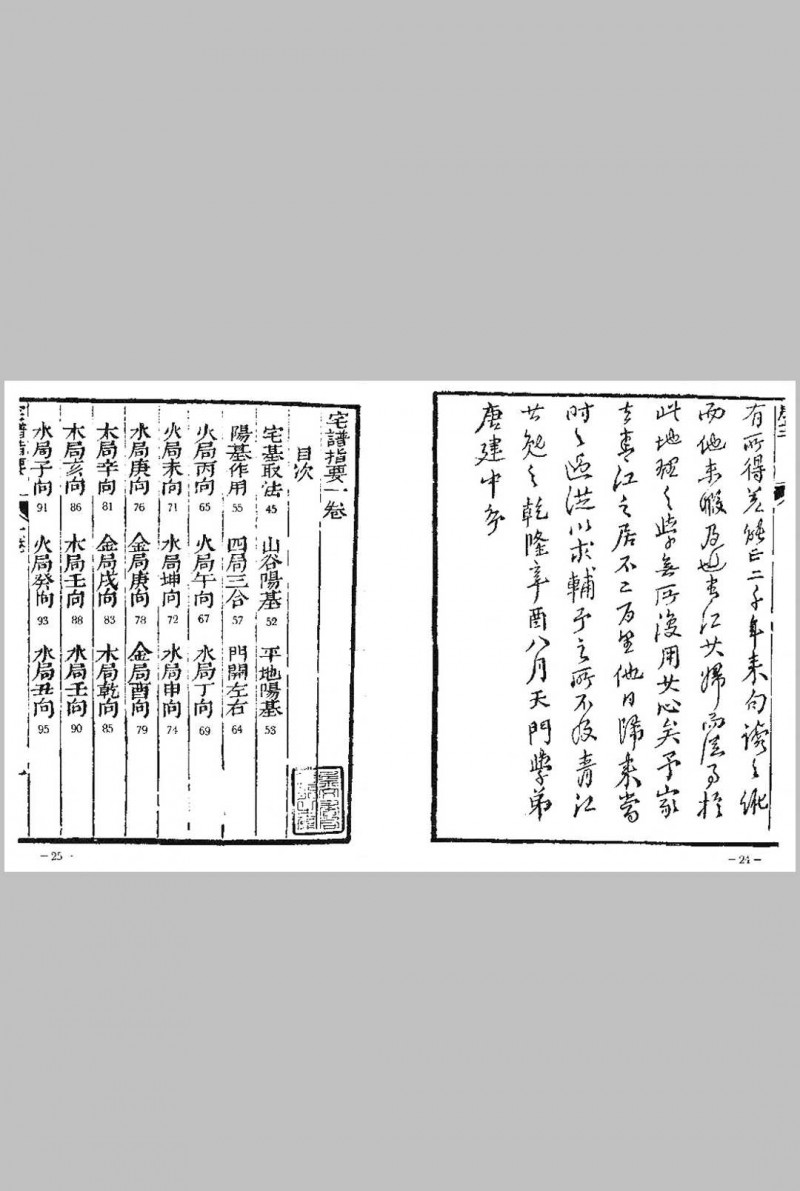 有所得差能正二千年來句讀之訛
而他未暇及也青江其婦而浸及於
此地理之學無所復用其心矣予家
去青江之居不二百里他日歸來當
時之過從以求輔予之所不及青江
其勉之乾隆辛酉八月天門學弟
唐建中序
－24－
宅譜指要一卷
目次
宅基取法 45 山谷陽基 52 平地陽基 53
陽基作用 55 四局三合 57 門開左右 64
火局丙向 65 火局午向 67 水局丁向 69
火局未向 71 水局坤向 72 水局申向 74
水局庚向 76 金局庚向 78 金局酉向 79
木局辛向 81 金局戌向 83 木局乾向 85
木局亥向 86 木局壬向 88 水局壬向 90
水局子向 91 火局癸向 93 水局丑向 95
宅譜指要
－25－